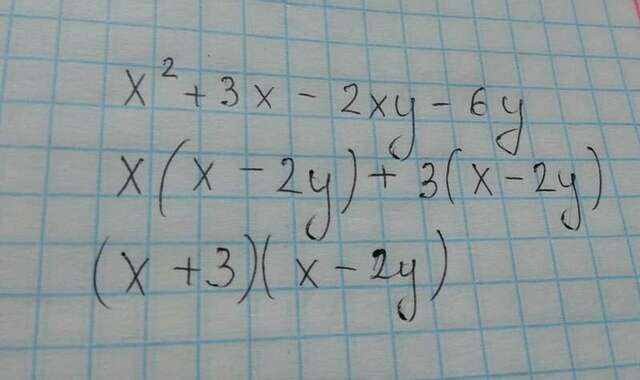 x² + 3x - 2xy - 6y
x(x - 2y) + 3(x - 2y)
(x + 3)(x - 2y)